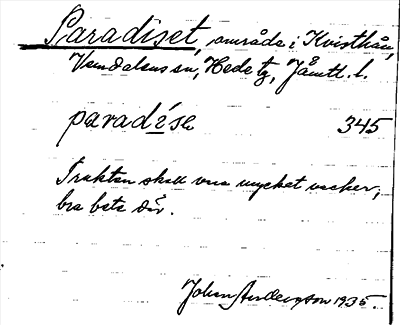 Paradiset, område i Kvisthån,
Vemdalens sn, Hede tg, Jämtl. l.
paradi´sɘ 345
Trakten skall vara mycket vacker,
bra bete där.
Johan Andersson 1935.